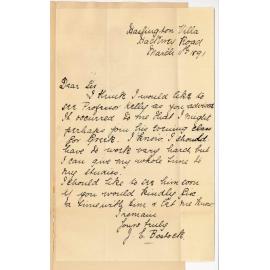 Darlington Villa
Dalkney Road
March 11th 1891
Dear Sir
I think I would like to
see Professor Kelly as you advised
It occurred to me that I might
perhaps join his evening class
for Greek. I know I should
have to work very hard but
I can give my whole time to
my studies.
I should like to see him soon
if you would kindly fix
a time with him & let me know
I remain
Yours truly
J E Bostock